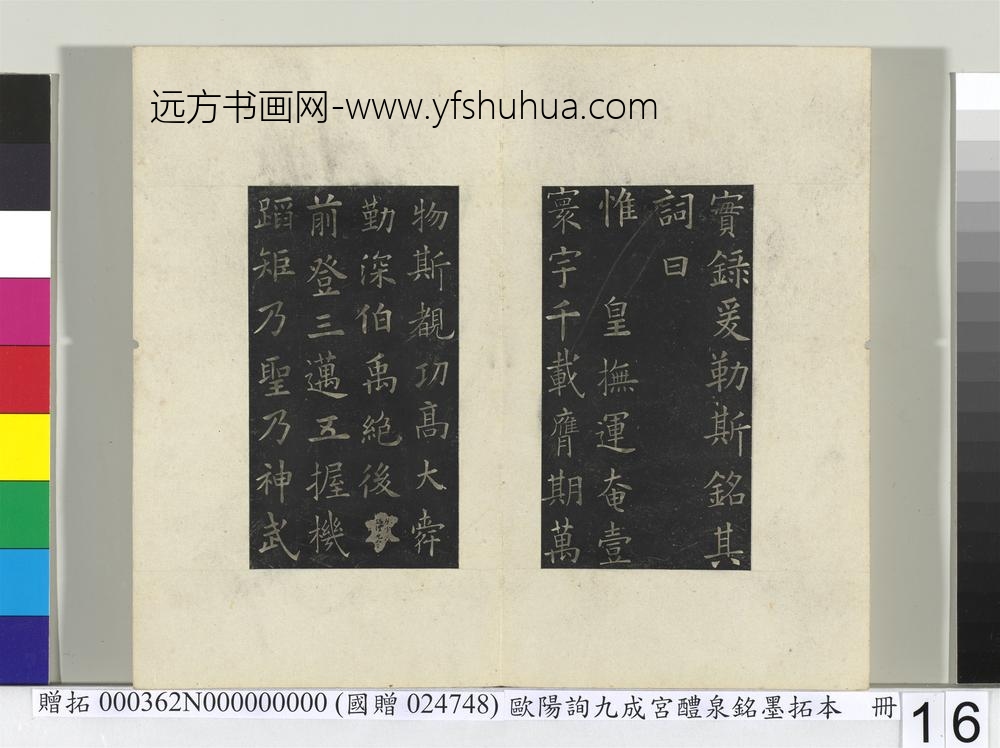 远方书画网-www.yfshuhua.com
實録爰勒斯銘其
詞曰
惟 皇撫運奄壹
寰宇千載膺期萬
物斯覩功高大舜
勤深伯禹絶後
前登三邁五握機
蹈矩乃聖乃神武
贈拓 000362N000000000 (國贈 024748) 歐陽詢九成宮醴泉銘墨拓本 冊
16